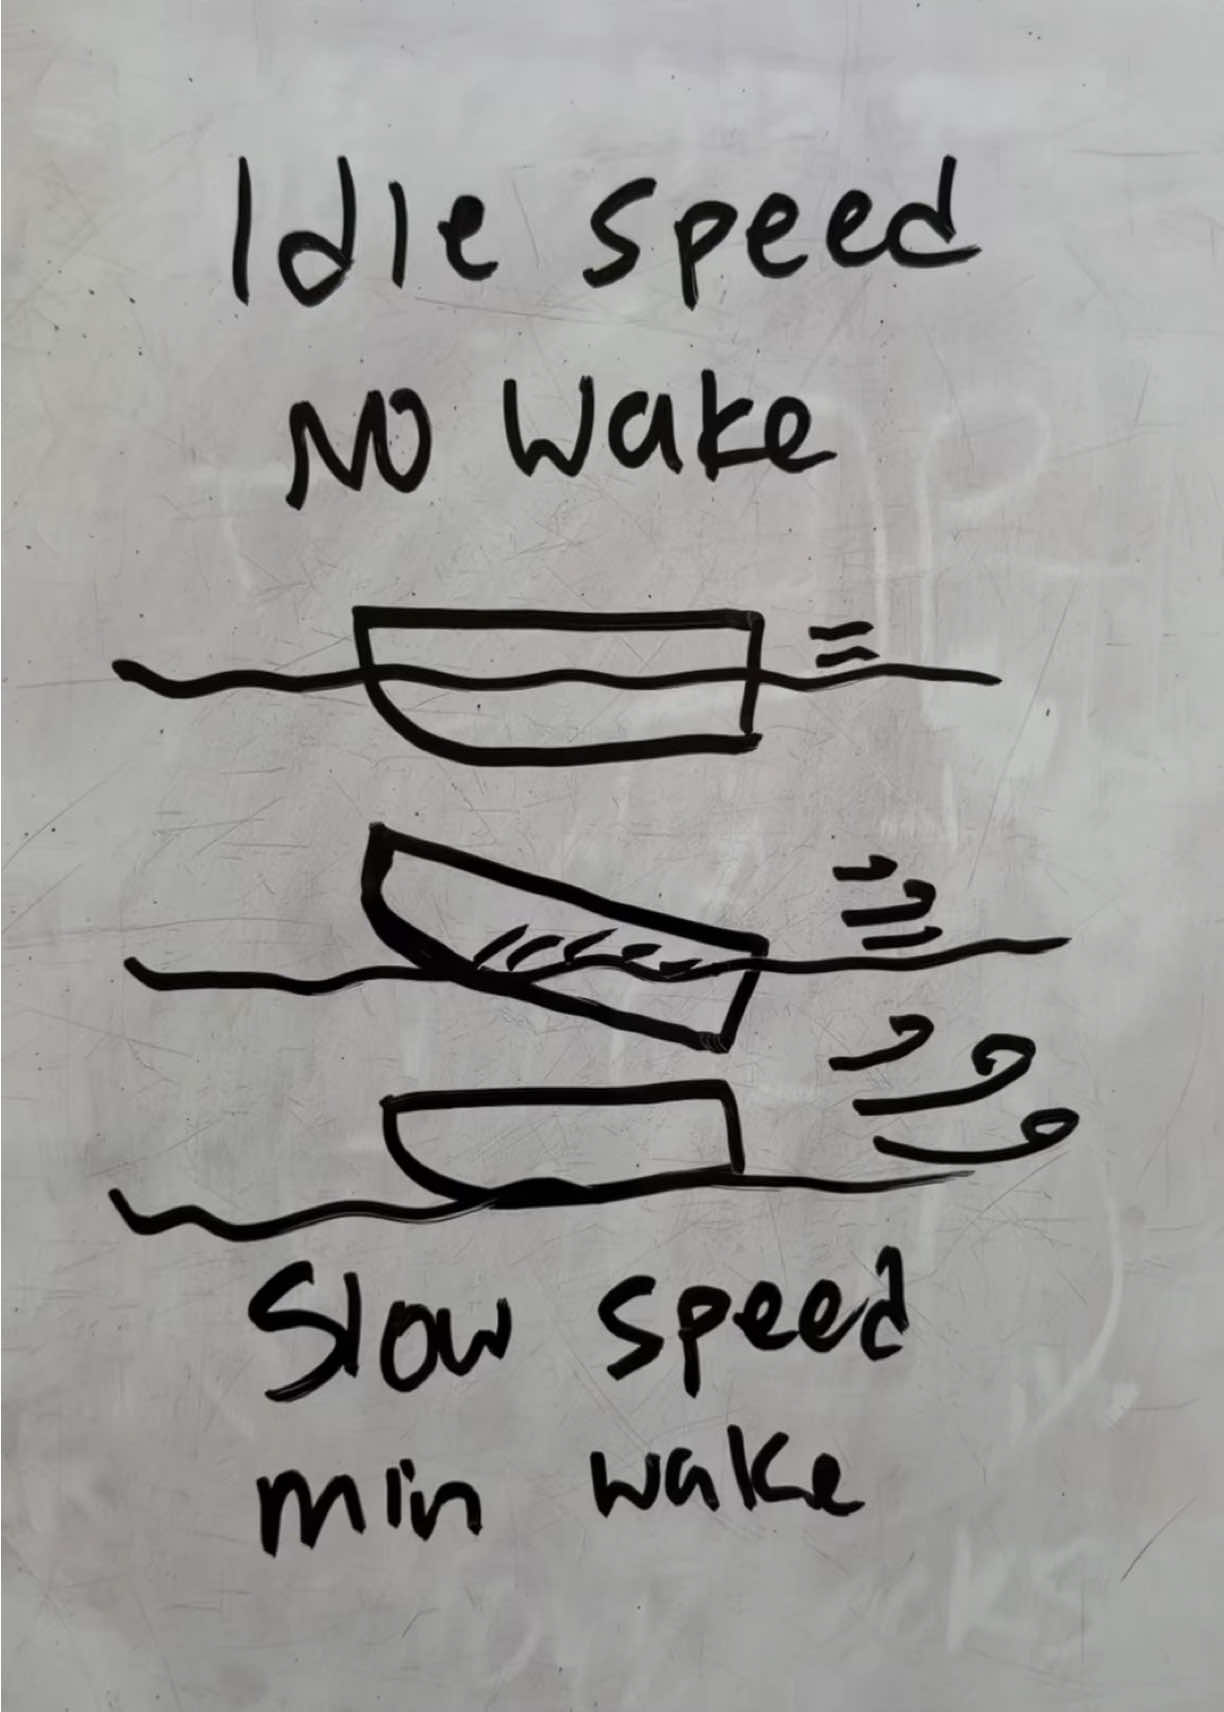 Idle speed
NO wake
Slow speed
min wake